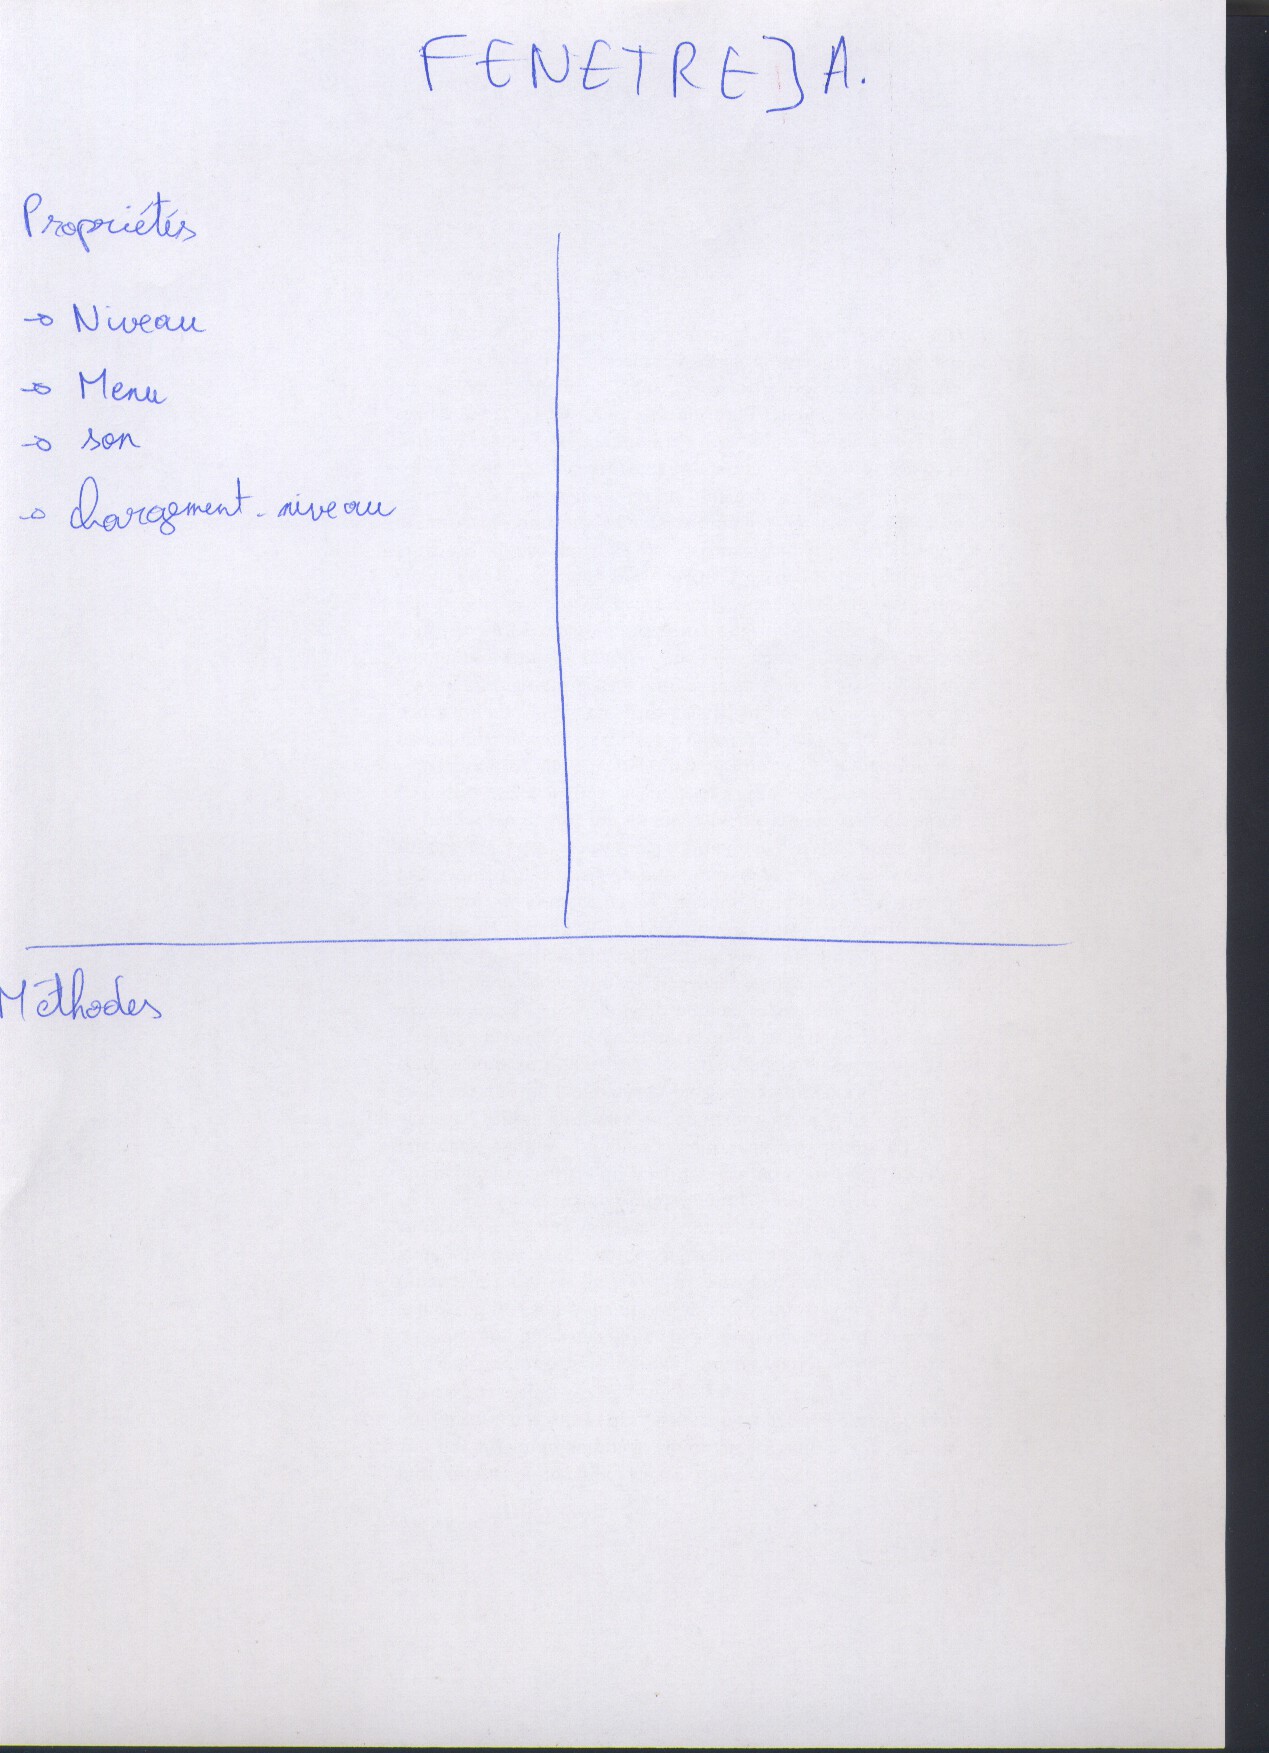 FENETRE}A.
Propriétés
→ Niveau
→ Menu
→ son
→ chargement_niveau
Méthodes